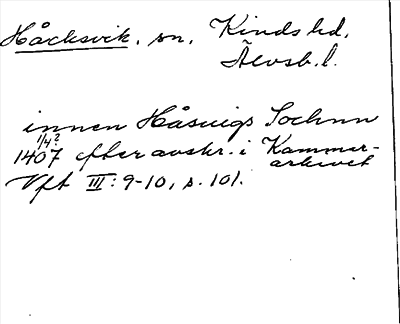 Håcksvik. sn. Kinds hd.
Älvsb. l.
innan Håsuigs Sochnn
1/4?
1407 efter avskr. i Kammar-
arkivet
Vft III: 9-10, s. 101.